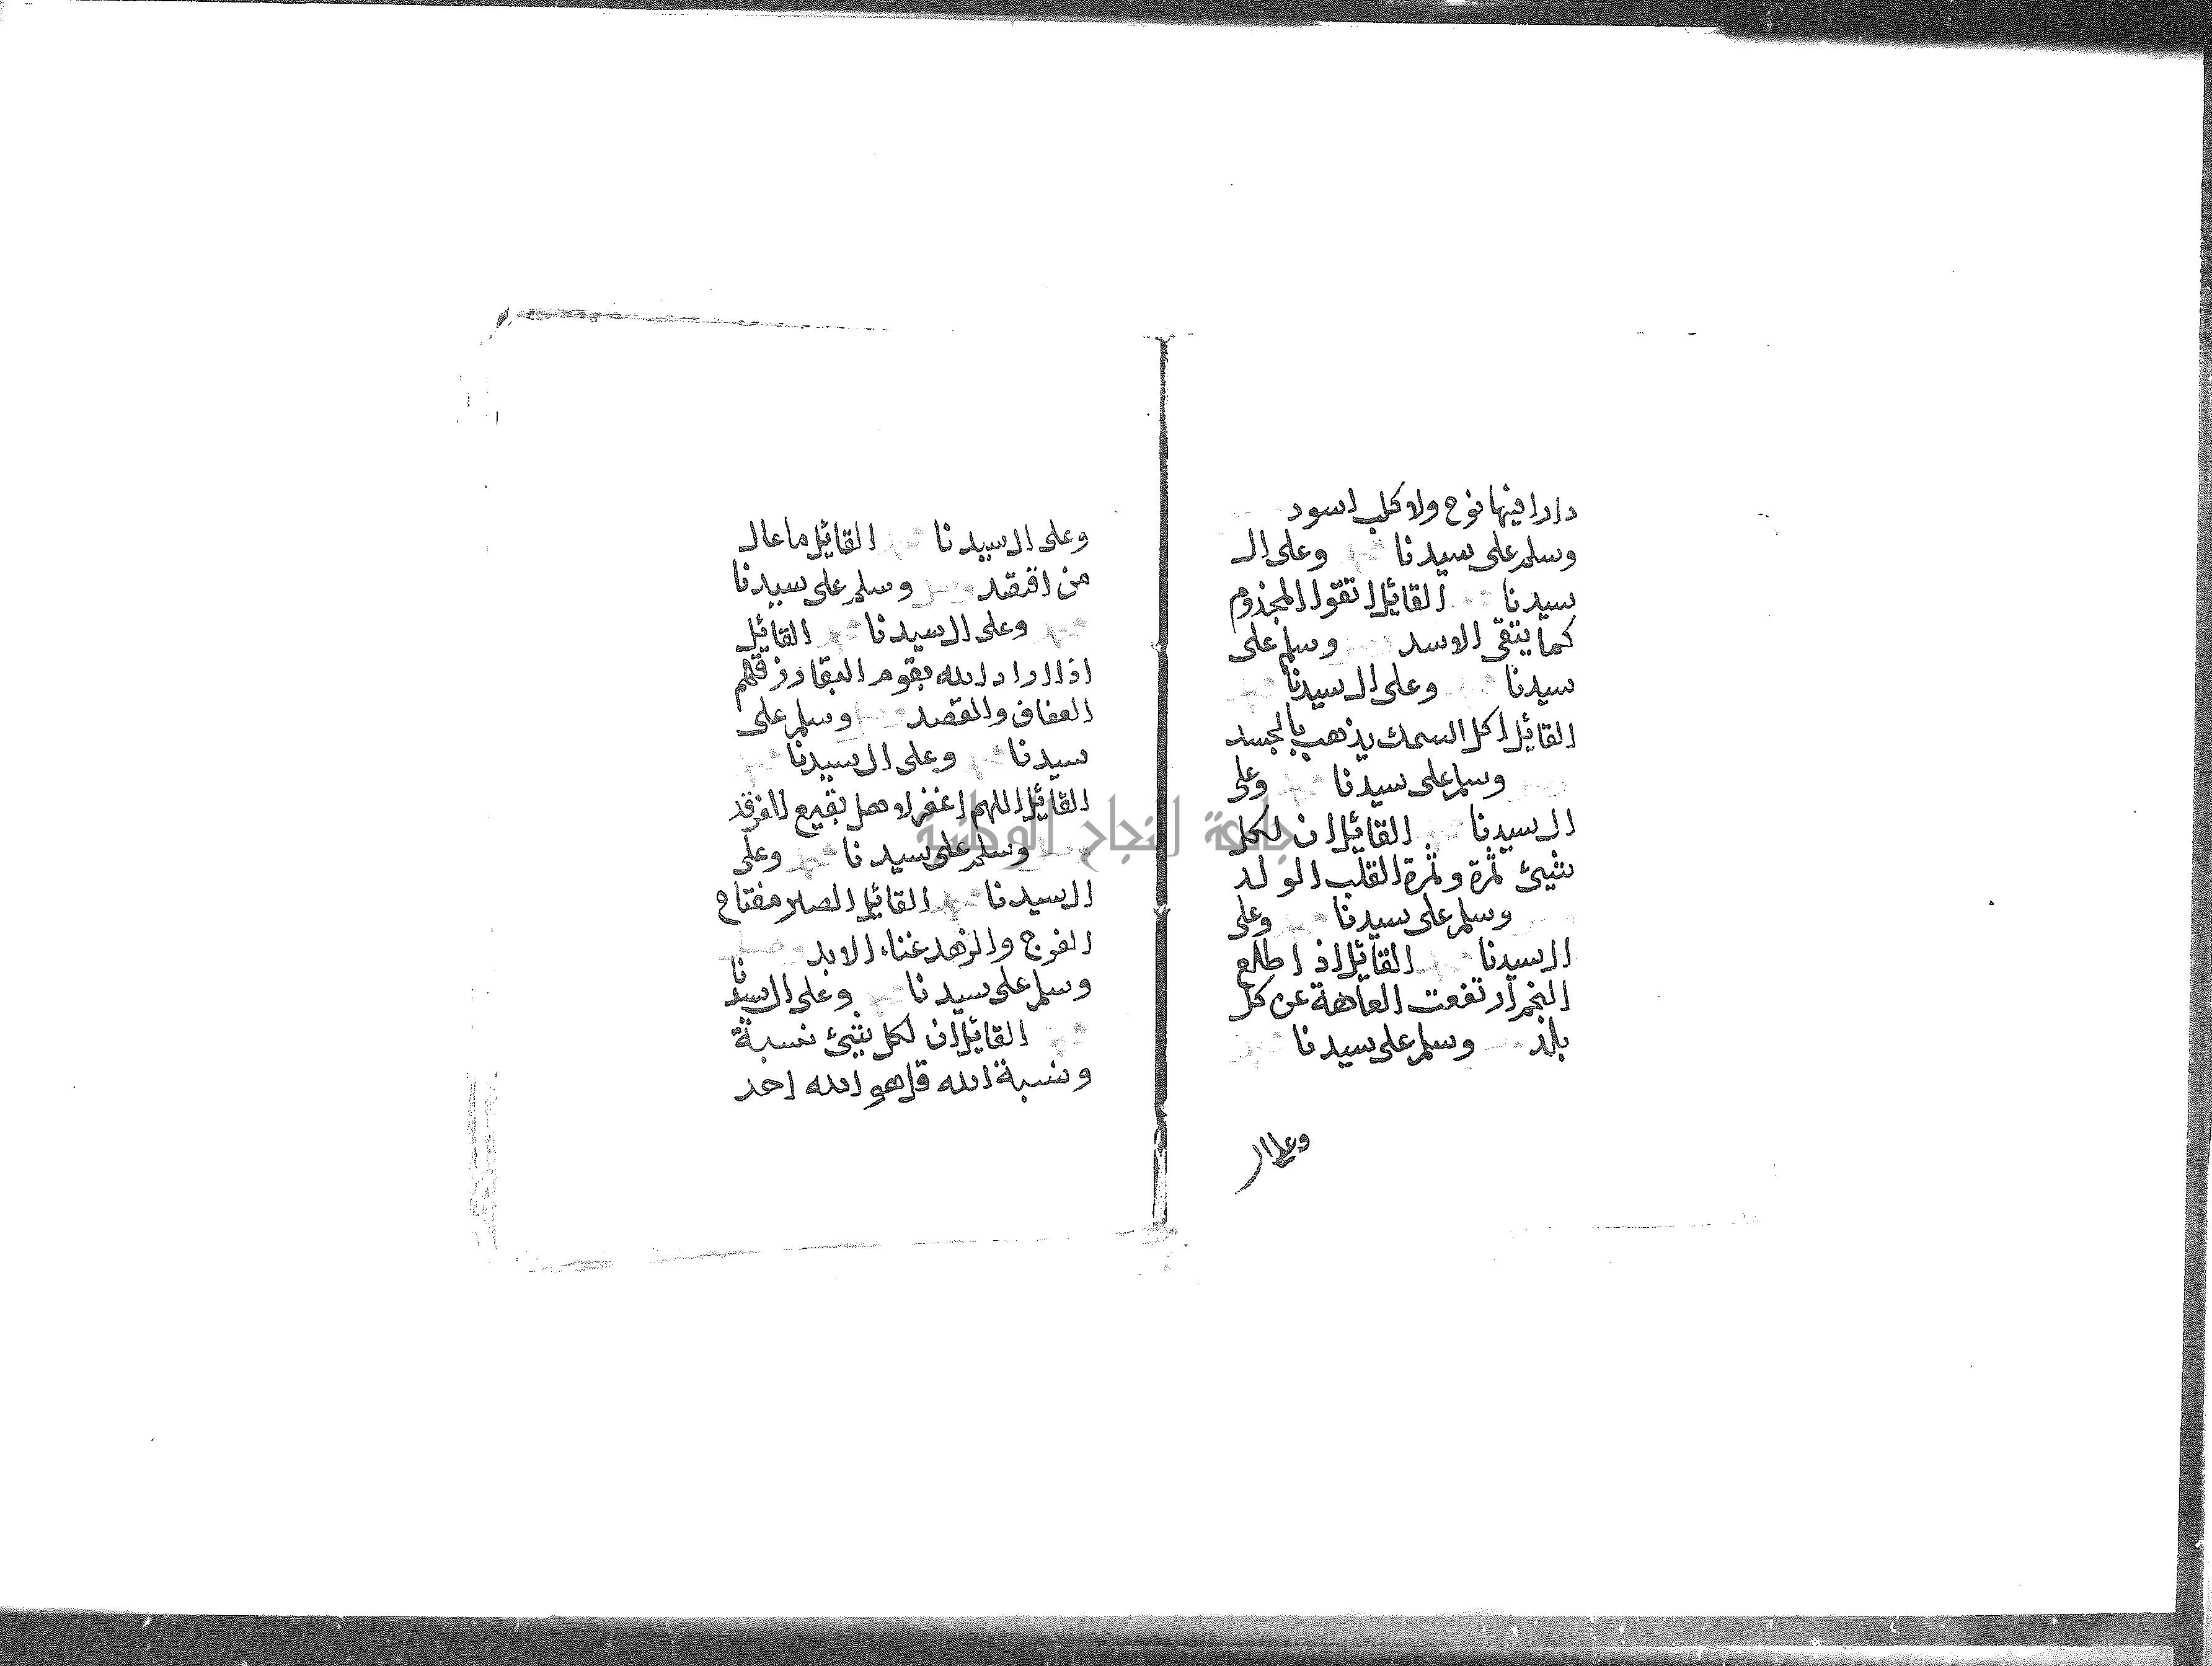 دارا فيها نوح ولا كلب اسود
وسلم على سيدنا وعلى ال
سيدنا القائل اتقوا المجذوم
كما يتقى الاسد وسلم على
سيدنا وعلى ال سيدنا
القائل اكل السمك يذهب بالجسد
وسلم على سيدنا وعلى
ال سيدنا القائل ان لكل
شيئ ثمرة وثمرة القلب الولد
وسلم على سيدنا وعلى
ال سيدنا القائل اذ اطلع
النجم ارتفعت العاهة عن كل
بلد وسلم على سيدنا
وعلى ال
وعلى ال سيدنا القائل ما عال
من اقتصد وسلم على سيدنا
وعلى ال سيدنا القائل
اذا اراد الله بقوم البقا رزقهم
العفاف والقصد وسلم على
سيدنا وعلى ال سيدنا
القائل اللهم اغفر لاهل بقيع الغرقد
وسلم على سيدنا وعلى
ال سيدنا القائل الصبر مفتاح
الفرج والزهد غناء الابد
وسلم على سيدنا وعلى ال سيدنا
القائل ان لكل شيئ نسبة
ونسبة الله قل هو الله احد
جامعة النجاح الوطنية